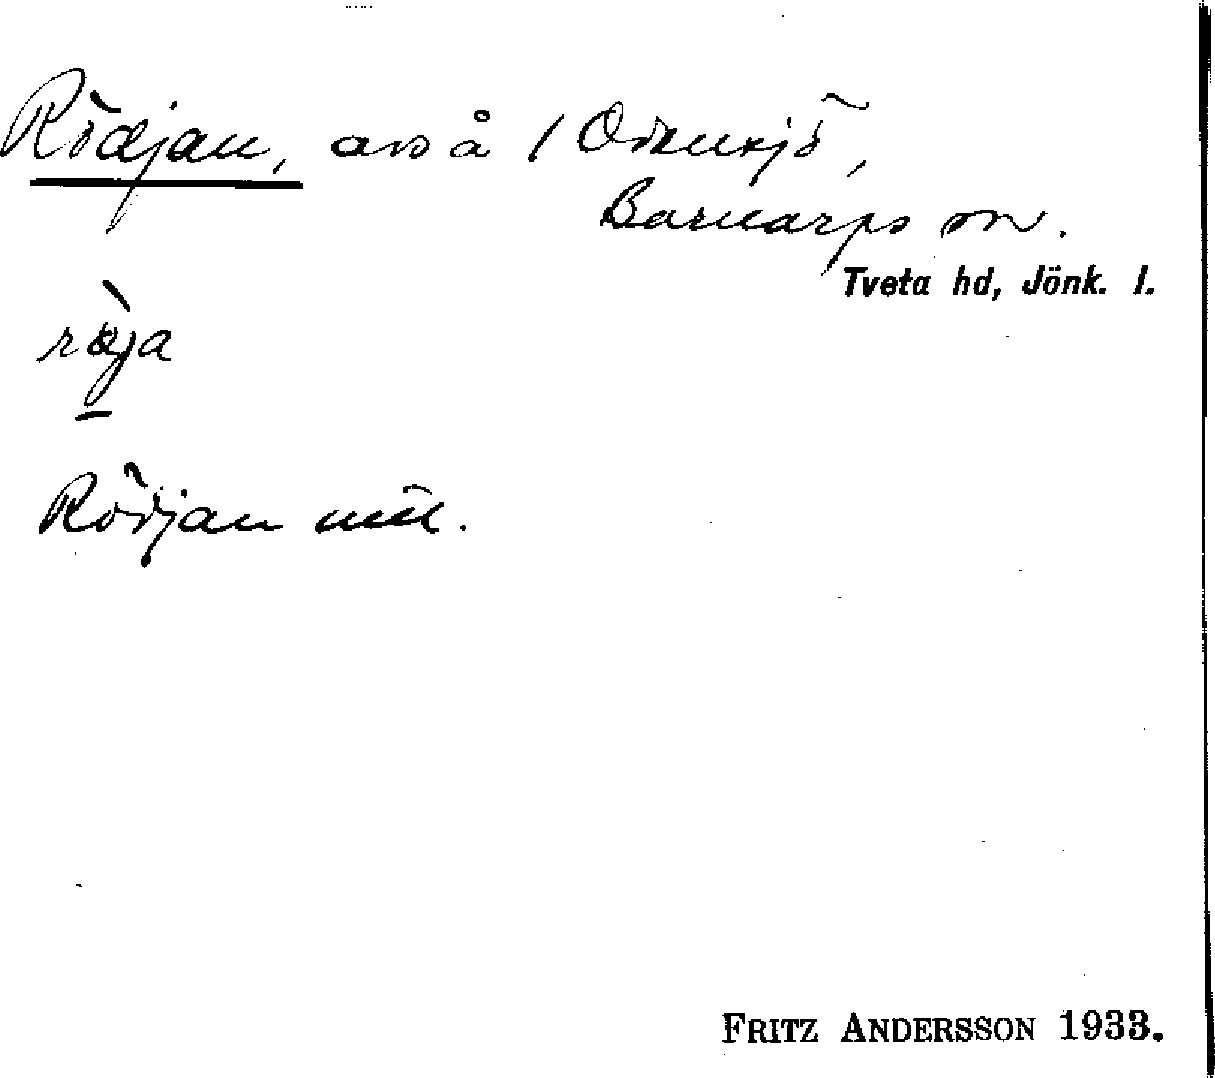 Rödjan, avs å 1 Odensjö,
Barnarps sn.
Tveta hd, Jönk. l.
röja
Rödjan
FRITZ ANDERSSON 1933.